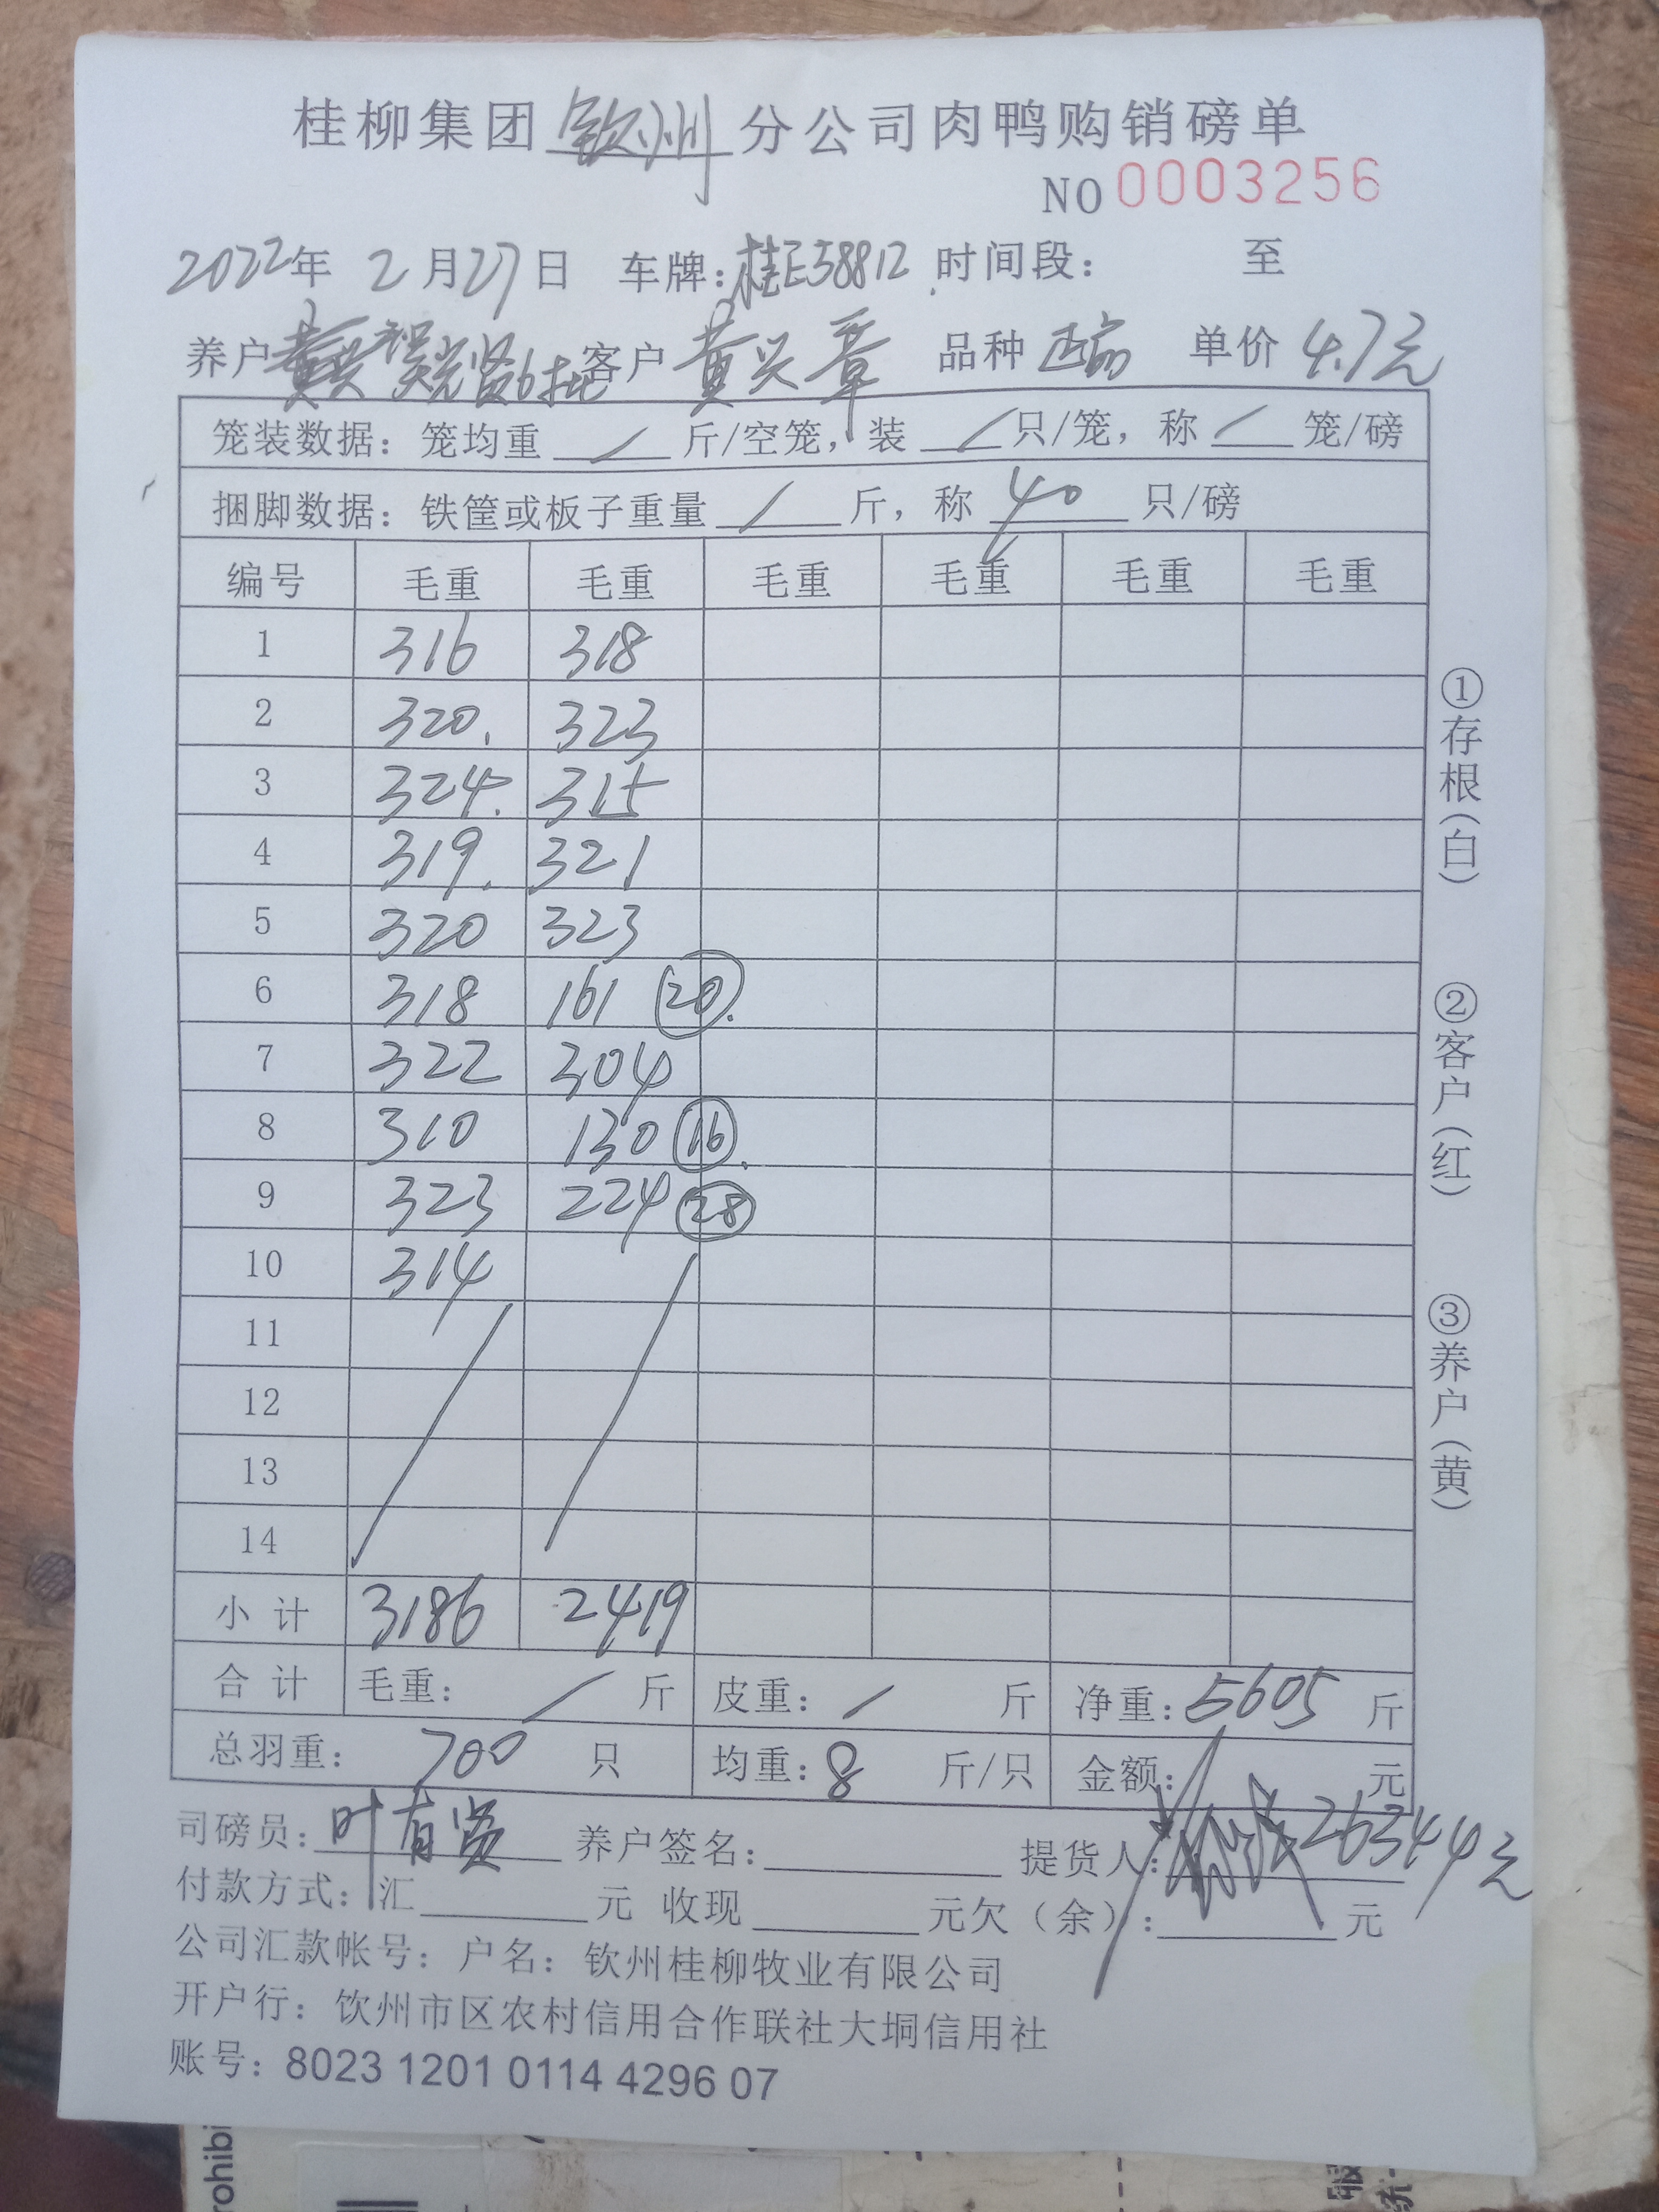 桂柳集团钦州分公司肉鸭购销磅单
NO 0003256
2022年 2月27日 车牌:桂E38812 时间段: 至
养户 6批 客户 黄兴章 品种 单价 4.7元
笼装数据: 笼均重 / 斤/空笼, 装 / 只/笼, 称 / 笼/磅
捆脚数据: 铁筐或板子重量 / 斤, 称 40 只/磅
编号 毛重 毛重 毛重 毛重 毛重 毛重
1 316 318
2 320. 323
3 324. 315
4 319. 321
5 320 323
6 318 161 ⑳.
7 322 304
8 310 130 ⑯.
9 323 224 ㉘
10 314
11
12
13
14
小计 3186 2419
合计 毛重: / 斤 皮重: / 斤 净重: 5605 斤
总羽重: 700 只 均重: 8 斤/只 金额: 元
司磅员: 叶有贤 养户签名: 提货人: 26344元
付款方式: 汇 元 收现 元欠(余): 元
公司汇款帐号: 户名: 钦州桂柳牧业有限公司
开户行: 钦州市区农村信用合作联社大垌信用社
账号: 8023 1201 0114 4296 07
①存根(白)
②客户(红)
③养户(黄)
rohibi